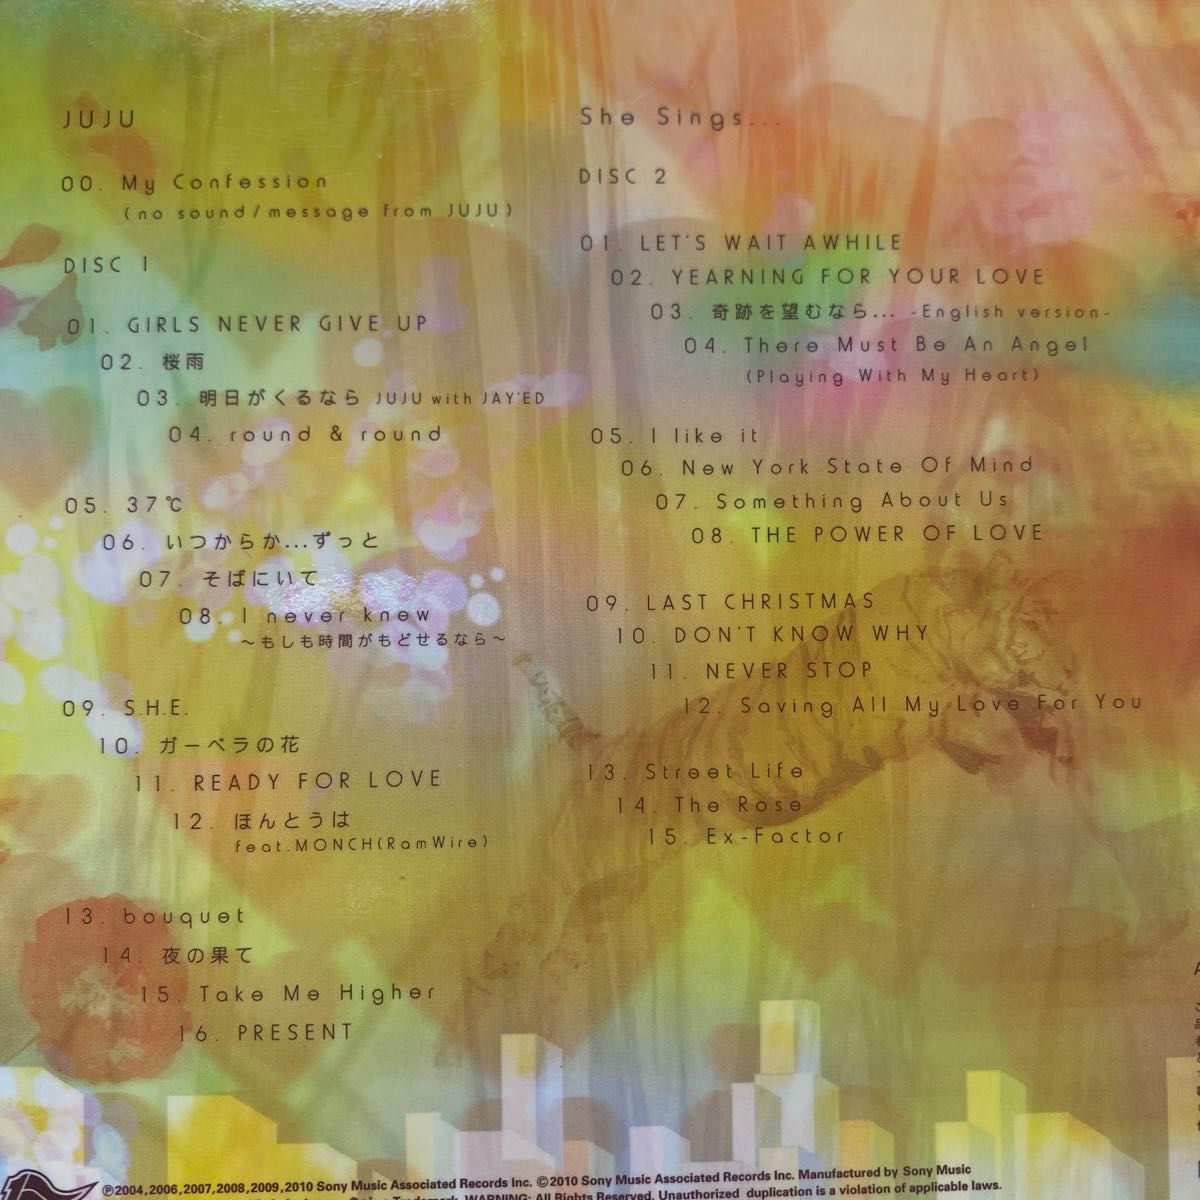 JUJU
00. My Confession
(no sound/message from JUJU)
DISC 1
01. GIRLS NEVER GIVE UP
02. 桜雨
03. 明日がくるなら JUJU with JAY'ED
04. round & round
05. 37℃
06. いつからか...ずっと
07. そばにいて
08. I never knew
～もしも時間がもどせるなら～
09. S.H.E.
10. ガーベラの花
11. READY FOR LOVE
12. ほんとうは
feat.MONCH(RamWire)
13. bouquet
14. 夜の果て
15. Take Me Higher
16. PRESENT
She Sings...
DISC 2
01. LET'S WAIT AWHILE
02. YEARNING FOR YOUR LOVE
03. 奇跡を望むなら... -English version-
04. There Must Be An Angel
(Playing With My Heart)
05. I like it
06. New York State Of Mind
07. Something About Us
08. THE POWER OF LOVE
09. LAST CHRISTMAS
10. DON'T KNOW WHY
11. NEVER STOP
12. Saving All My Love For You
13. Street Life
14. The Rose
15. Ex-Factor
℗2004,2006,2007,2008,2009,2010 Sony Music Associated Records Inc. ©2010 Sony Music Associated Records Inc. Manufactured by Sony Music
Trademark. WARNING: All Rights Reserved. Unauthorized duplication is a violation of applicable laws.